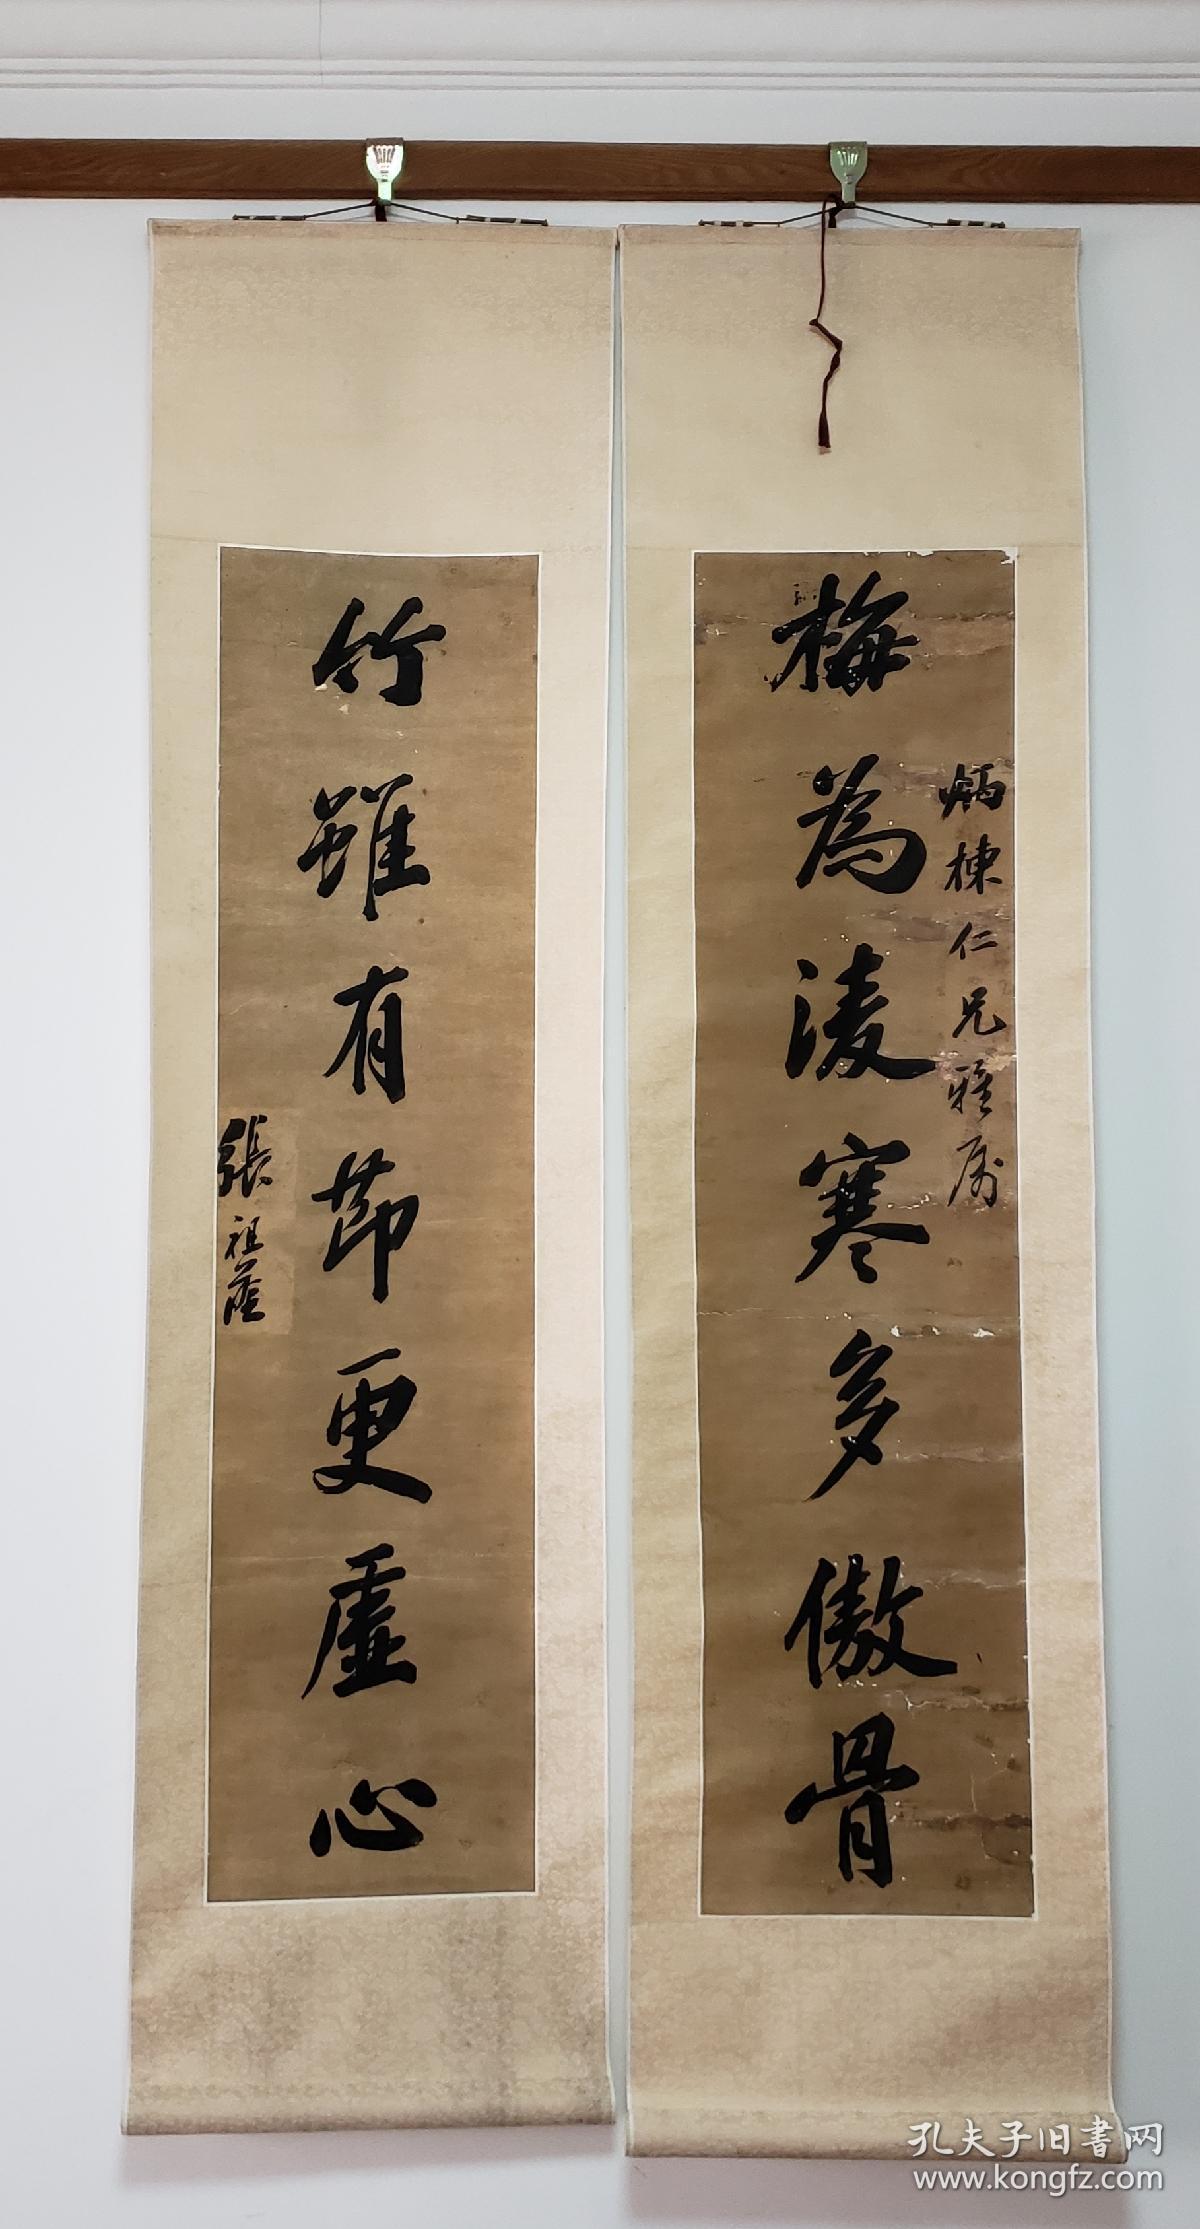 炳棟仁兄雅属
梅為凌寒多傲骨
竹雖有節更虛心
張祖蔭
孔夫子旧書网
www.kongfz.com